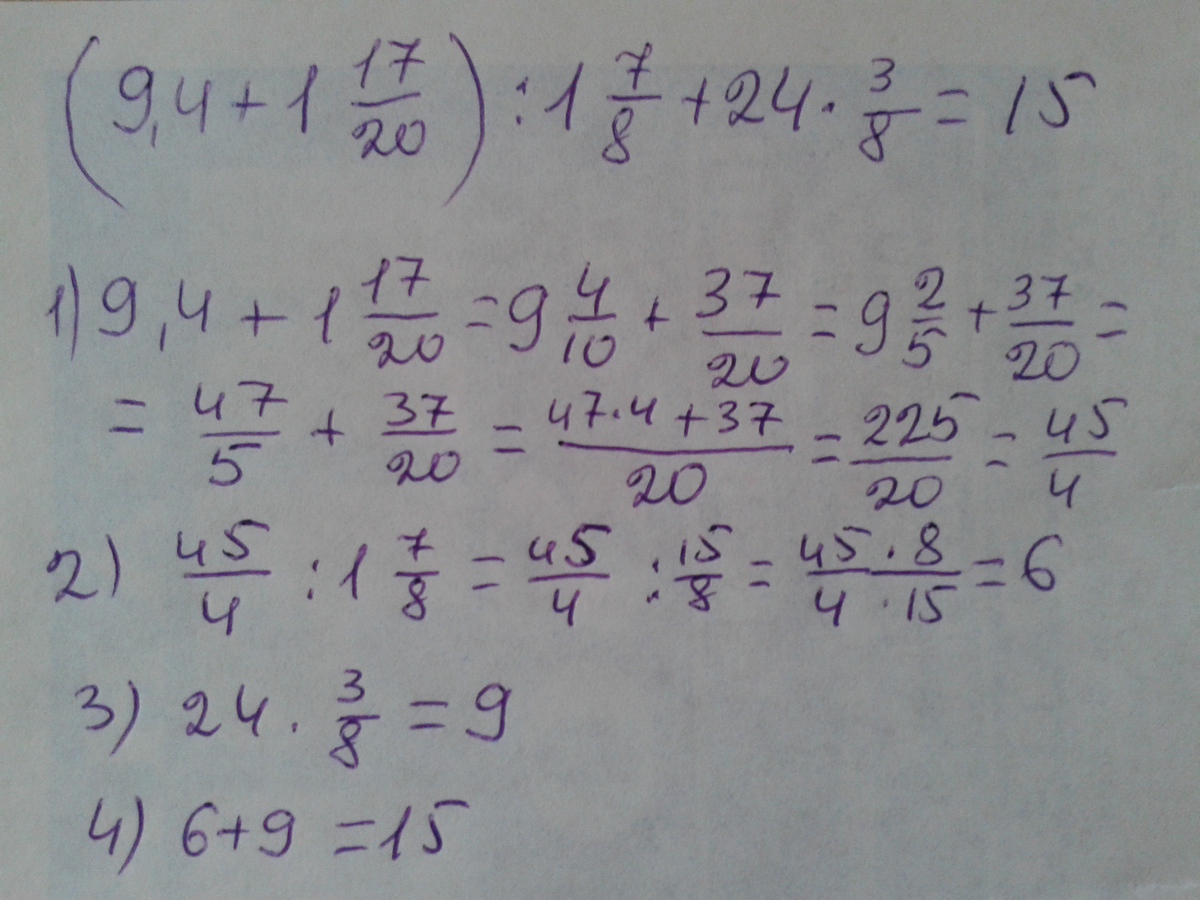 (9,4 + 1 17/20) : 1 7/8 + 24 · 3/8 = 15
1) 9,4 + 1 17/20 = 9 4/10 + 37/20 = 9 2/5 + 37/20 =
= 47/5 + 37/20 = (47·4 + 37)/20 = 225/20 = 45/4
2) 45/4 : 1 7/8 = 45/4 : 15/8 = (45 · 8)/(4 · 15) = 6
3) 24 · 3/8 = 9
4) 6+9 = 15